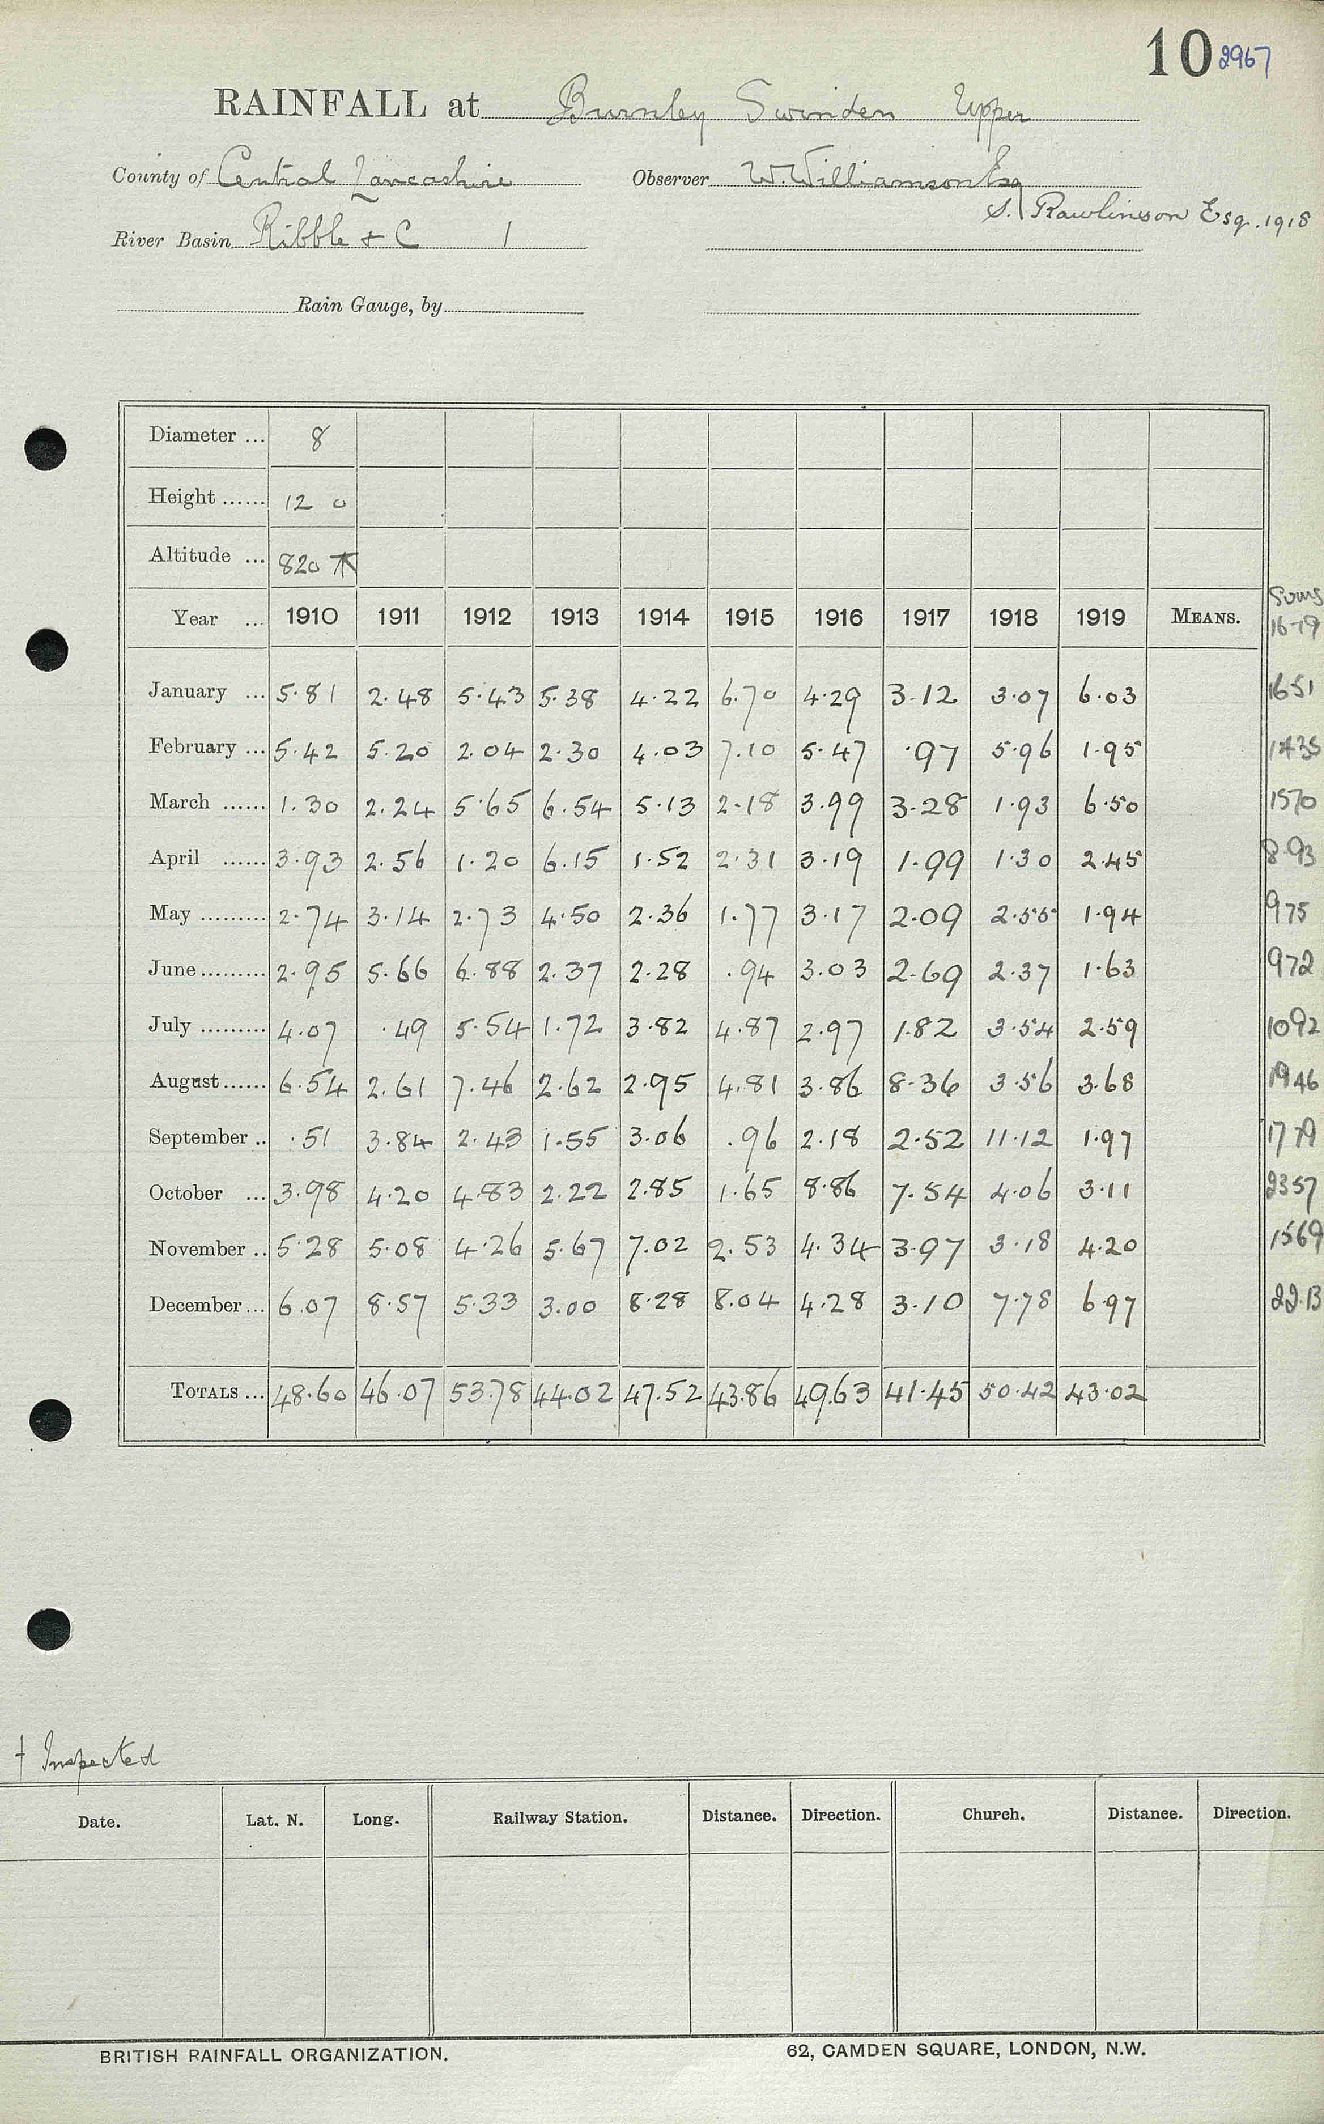 10 2967
RAINFALL at Burnley Swinden Upper
County of Central Lancashire Observer W. Williamson Esq
S. Rawlinson Esq. 1918
River Basin Ribble & C 1
Rain Gauge, by
Diameter ... 8
Height ...... 12 0
Altitude ... 820
Year ... 1910 1911 1912 1913 1914 1915 1916 1917 1918 1919 MEANS. Sums
16-19
January ... 5.81 2.48 5.43 5.38 4.22 6.70 4.29 3.12 3.07 6.03 1651
February ... 5.42 5.20 2.04 2.30 4.03 7.10 5.47 .97 5.96 1.95 1435
March ...... 1.30 2.24 5.65 6.54 5.13 2.18 3.99 3.28 1.93 6.50 1570
April ...... 3.93 2.56 1.20 6.15 1.52 2.31 3.19 1.99 1.30 2.45 8.93
May ......... 2.74 3.14 2.73 4.50 2.36 1.77 3.17 2.09 2.55 1.94 975
June ......... 2.95 5.66 6.88 2.37 2.28 .94 3.03 2.69 2.37 1.63 972
July ......... 4.07 .49 5.54 1.72 3.82 4.87 2.97 1.82 3.54 2.59 1092
August ...... 6.54 2.61 7.46 2.62 2.95 4.81 3.86 8.36 3.56 3.68 1946
September .. .51 3.84 2.43 1.55 3.06 .96 2.18 2.52 11.12 1.97 1779
October ... 3.98 4.20 4.83 2.22 2.85 1.65 8.86 7.54 4.06 3.11 2357
November .. 5.28 5.08 4.26 5.67 7.02 2.53 4.34 3.97 3.18 4.20 1569
December ... 6.07 8.57 5.33 3.00 8.28 8.04 4.28 3.10 7.78 6.97 22.13
TOTALS ... 48.60 46.07 53.78 44.02 47.52 43.86 49.63 41.45 50.42 43.02
† Inspected
Date. Lat. N. Long. Railway Station. Distance. Direction. Church. Distance. Direction.
BRITISH RAINFALL ORGANIZATION. 62, CAMDEN SQUARE, LONDON, N.W.